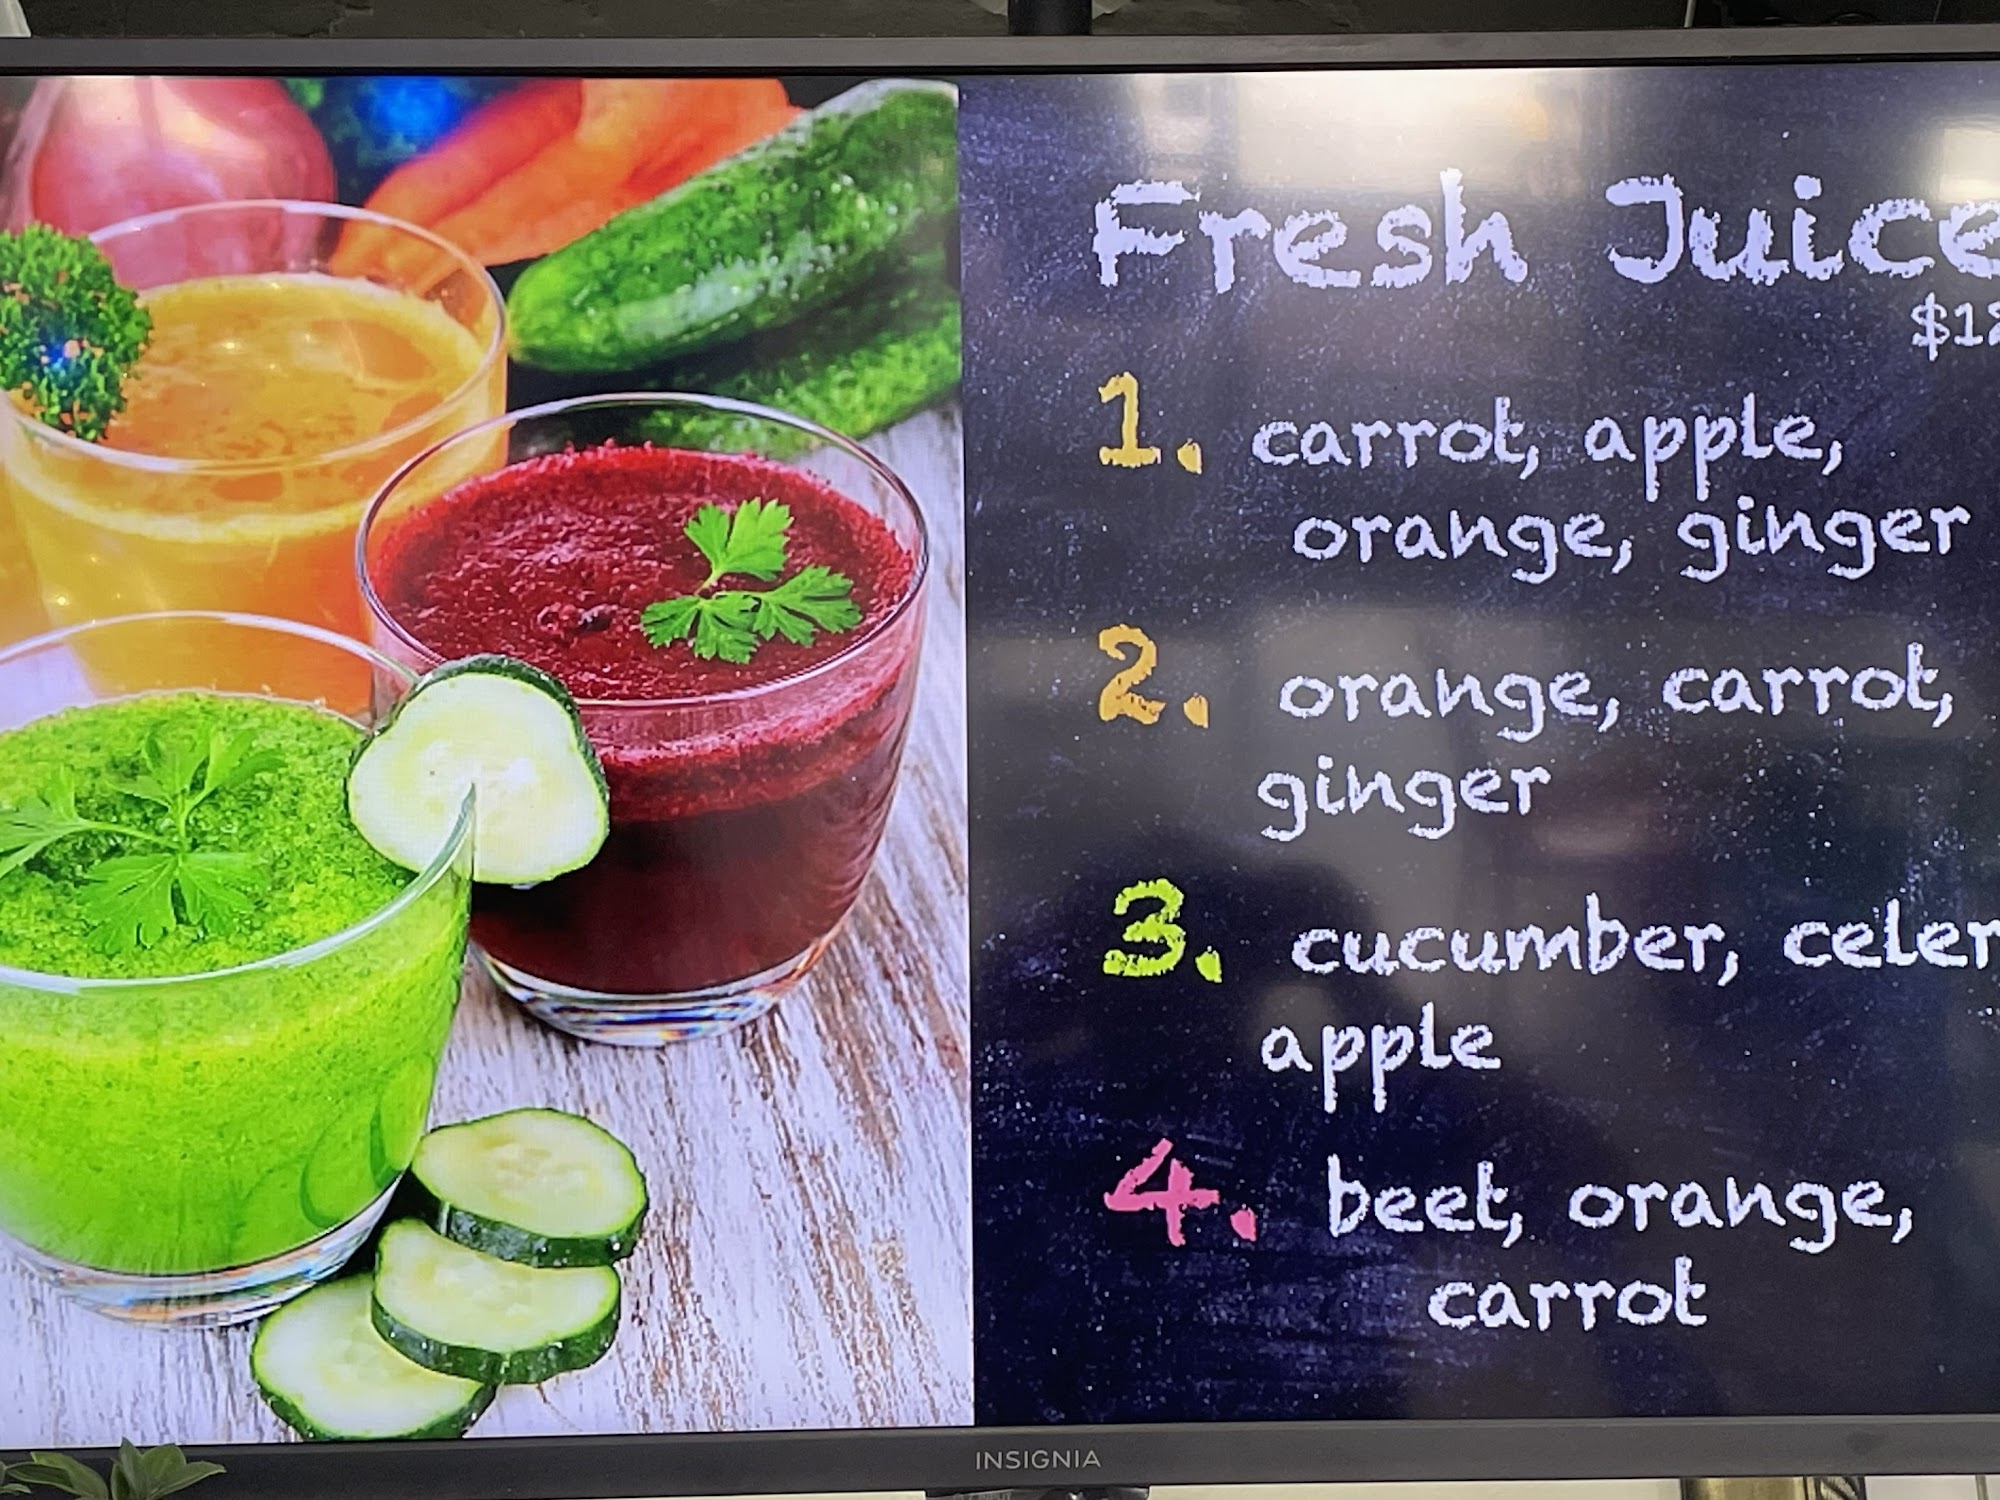 Fresh Juice
$12
1. carrot, apple,
orange, ginger
2. orange, carrot,
ginger
3. cucumber, celer
apple
4. beet, orange,
carrot
INSIGNIA